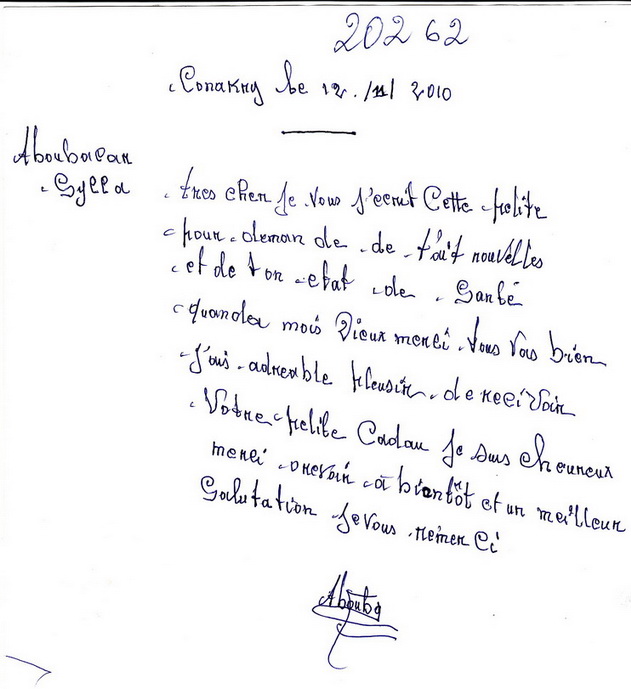 20262
Conakry le 12./11/ 2010
Aboubacar
Sylla
tres cher Je Vous j'ecrit Cette petite
pour deman de de tait nouvelles
et de ton etat de Santé
quandea mois Dieux merci Vous Vas bien
J'ais adreable pleusir de recivoir
Votre petite Cadau Je suis cheureux
merci orevoir à bientôt et un meilleur
Salutation Je vous remerci
Abouba